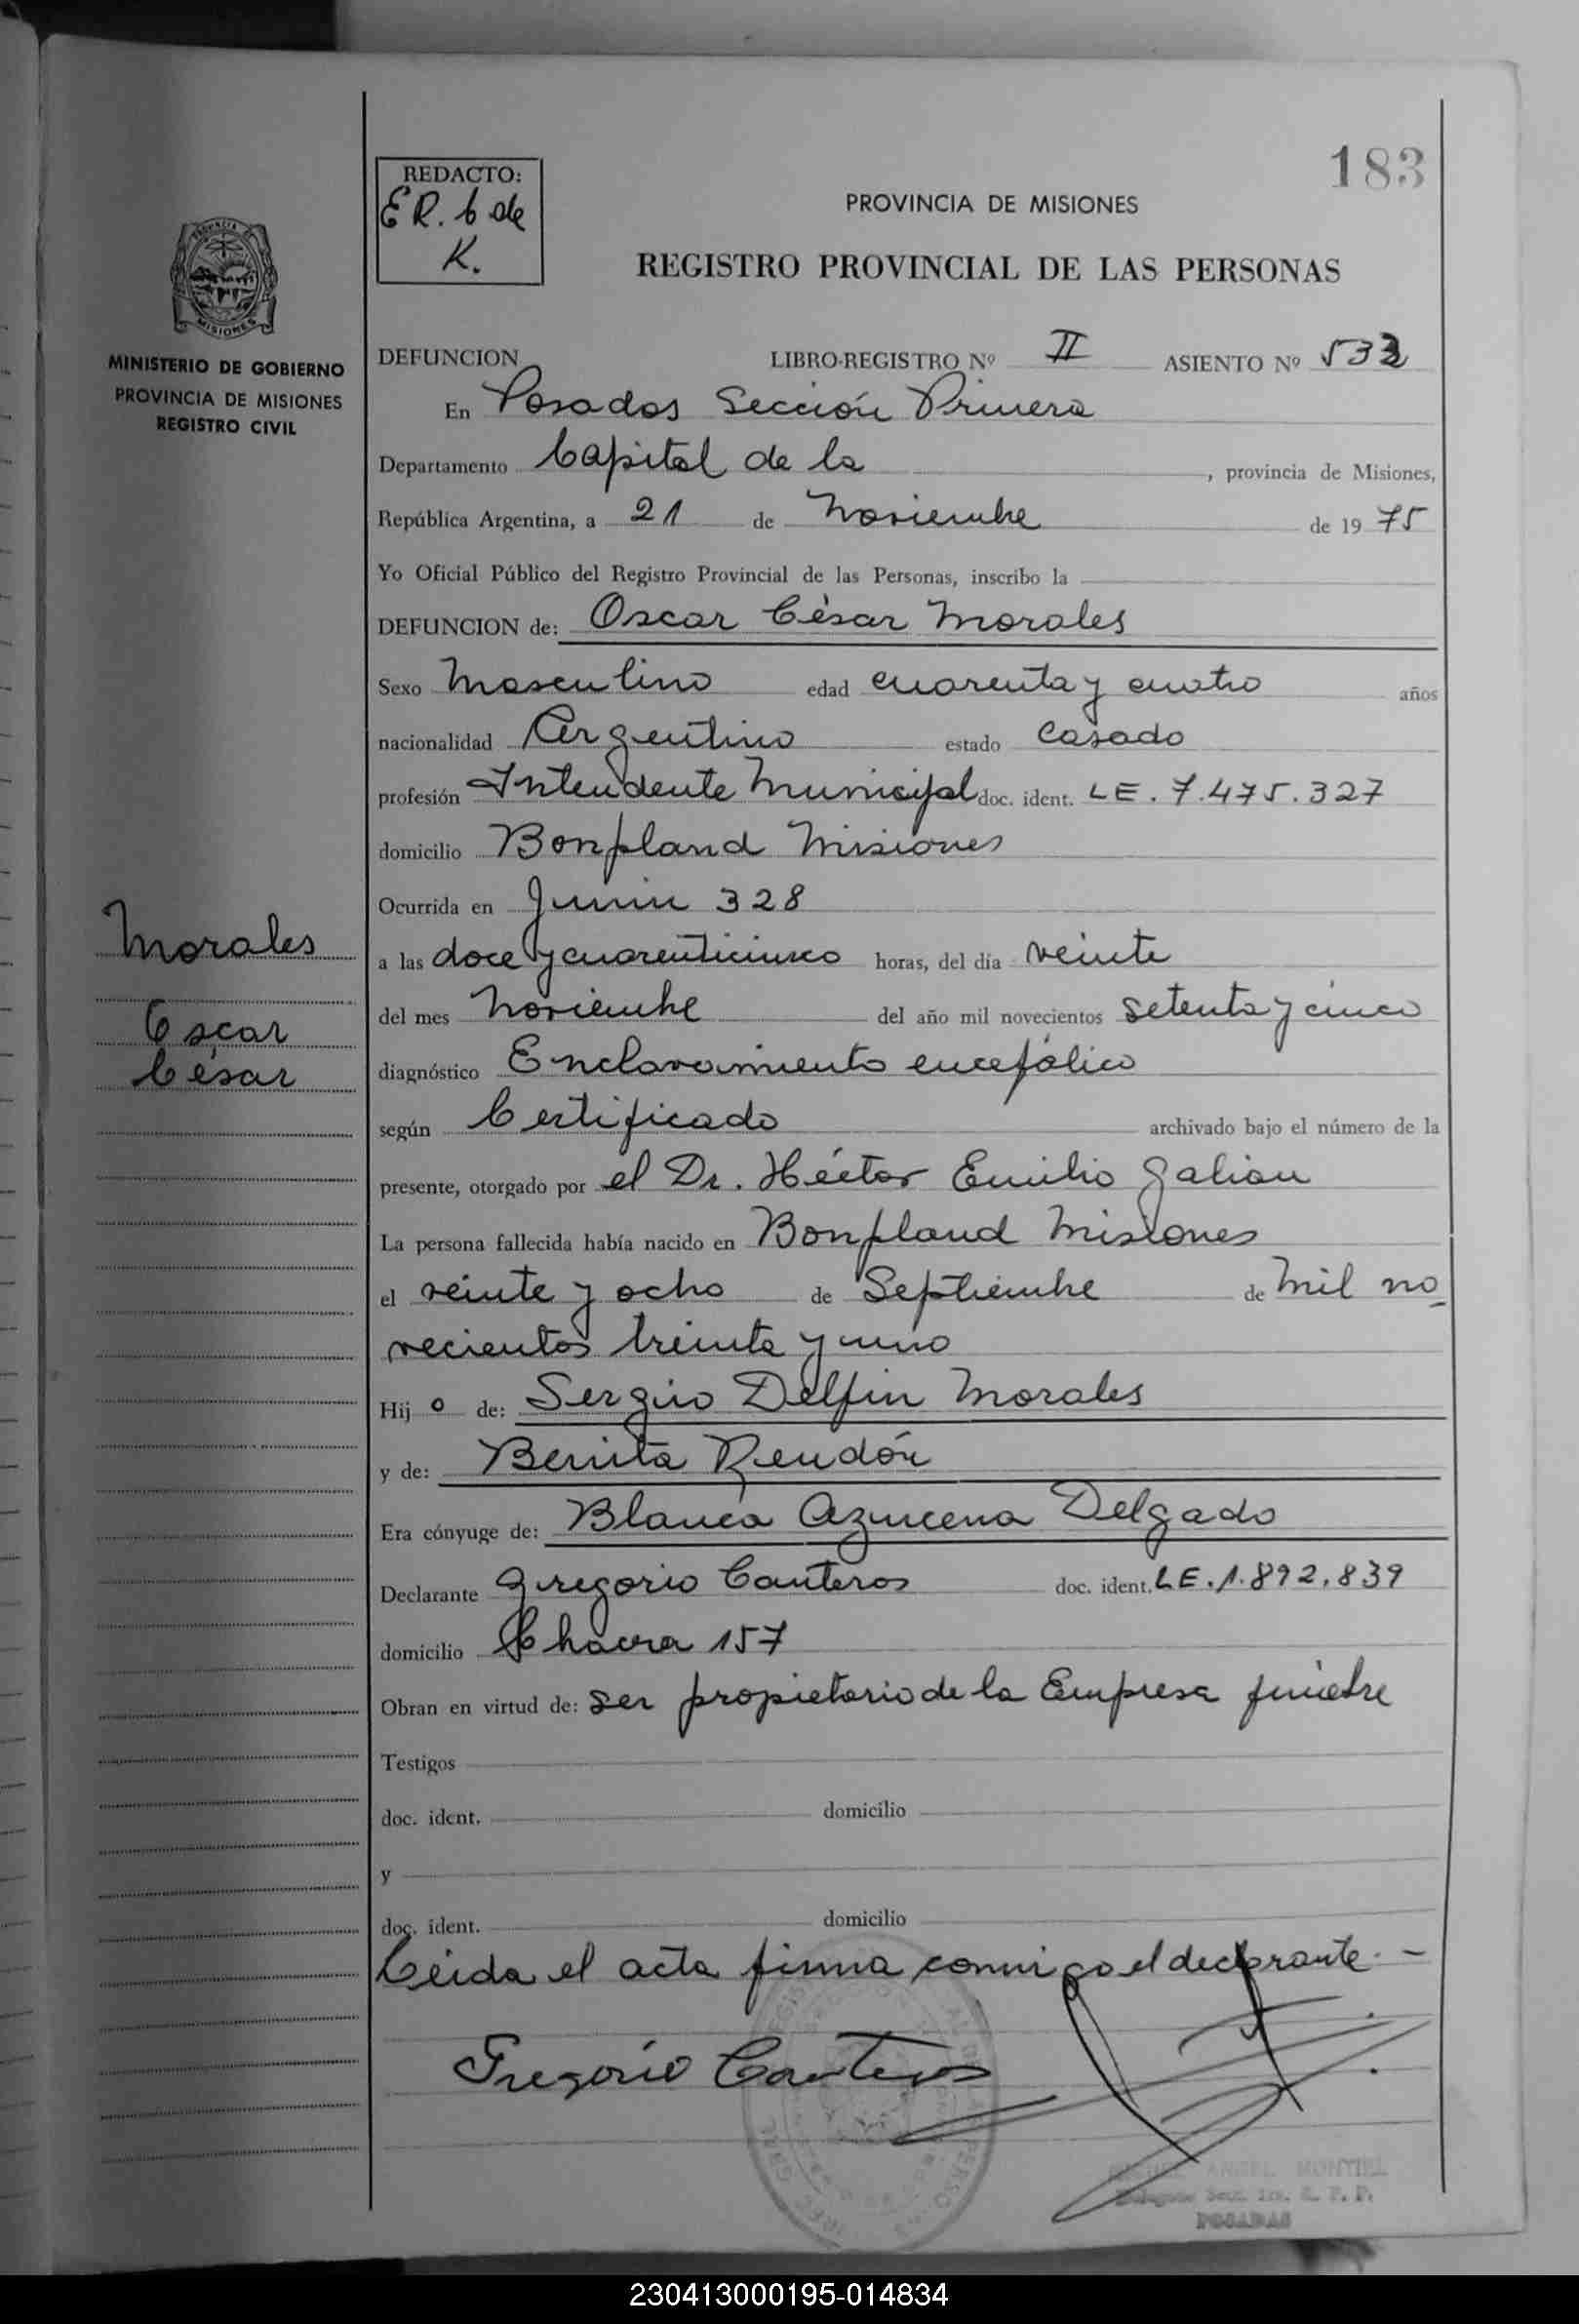 183
REDACTO:
E R. b de
K.
PROVINCIA DE MISIONES
REGISTRO PROVINCIAL DE LAS PERSONAS
PROVINCIA DE
MISIONES
MINISTERIO DE GOBIERNO
PROVINCIA DE MISIONES
REGISTRO CIVIL
DEFUNCION LIBRO-REGISTRO Nº II ASIENTO Nº 533
En Posadas Sección Primera
Departamento Capital de la , provincia de Misiones,
República Argentina, a 21 de Noviembre de 19 75
Yo Oficial Público del Registro Provincial de las Personas, inscribo la
DEFUNCION de: Oscar César Morales
Sexo Masculino edad cuarenta y cuatro años
nacionalidad Argentino estado Casado
profesión Intendente Municipal doc. ident. LE. 7.475.327
domicilio Bonpland Misiones
Ocurrida en Junin 328
a las doce y cuarenticinco horas, del día veinte
del mes Noviembre del año mil novecientos Setenta y cinco
diagnóstico Enclavamiento encefálico
según Certificado archivado bajo el número de la
presente, otorgado por el Dr. Héctor Emilio Galian
La persona fallecida había nacido en Bonpland Misiones
el veinte y ocho de Septiembre de Mil no_
vecientos treinta y uno
Hij o de: Sergio Delfin Morales
y de: Benita Rendón
Era cónyuge de: Blanca Azucena Delgado
Declarante Gregorio Canteros doc. ident. LE. 1.892.839
domicilio Chacra 157
Obran en virtud de: ser propietario de la Empresa fúnebre
Testigos
doc. ident. domicilio
y
doc. ident. domicilio
Leida el acta firma conmigo el declarante. -
Gregorio Canteros
Morales
Oscar
César
ANGEL MONTIEL
POSADAS
230413000195-014834